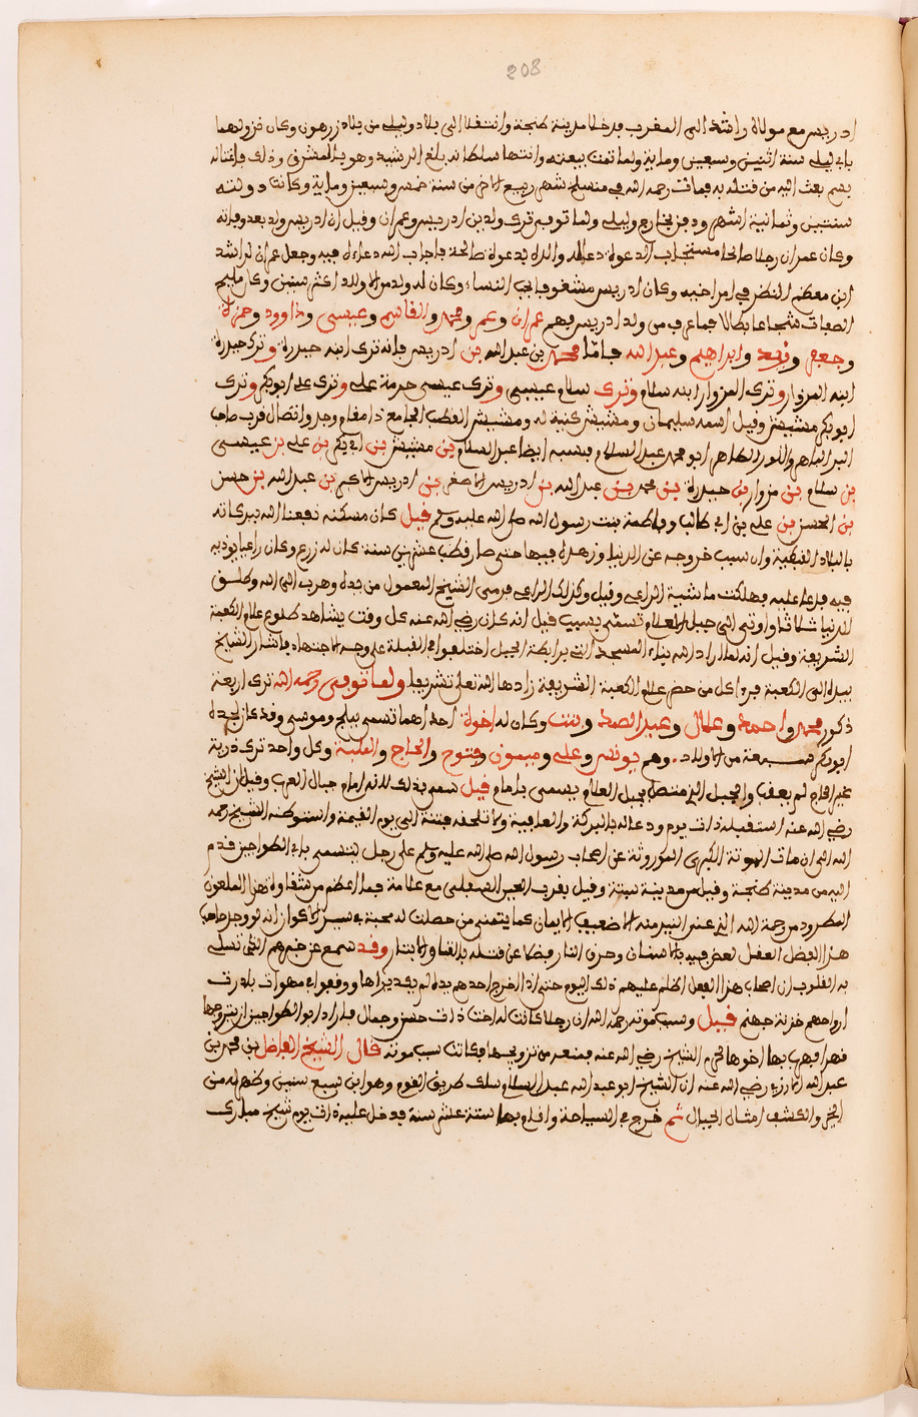 208
ادريس مع مولاه راشد الى المغرب فدخلا مدينة طنجة وانتقلا الى بلاد وليلى من بلاد زرهون وكان نزولهما
سنة اثنين وسبعين وماية ولما تمت بيعته وانتها سلطانه بلغ الرشيد وهو بالمشرق وذلك
بعث اليه من قتله به فمات رحمه الله في منسلخ شهر ربيع الاخر من سنة خمس وسبعين وماية وكانت دولته
سنتين وثمانية اشهر ودفن بخارج وليلى ولما توفي ترك ولدين ادريس وعمران وقيل ان ادريس ولد بعد وفاته
وكان عمران رجلا صالحا مستجاب الدعوة دعا له والده بدعوة صالحة فاجاب الله دعاءه فيه وجعل عمران لراشد
ابن معظم النظر في امر اخيه وكان ادريس مشغوفا بحب النساء وكان له ولد من الاولاد اكثر سنين وكان مليح
الصفات شجاعا بطالا فمن ولد ادريس بهم عمران وعمر ومحمد والقاسم وعيسى وداوود وحمزة
وجعفر ويحيى وابراهيم وعبد الله فاما محمد بن عبد الله بن ادريس فانه ترك ابنه حيدرة وترك حيدرة
ابنه المزوار وترك المزوار ابنه سلام وترك سلام عيسى وترك عيسى حرمة على وترك على ابو بكر وترك
ابو بكر مشيش وقيل اسمه سليمان ومشيش كنية له ومشيش القطب الجامع ذا مقام وجد واتصال قرب صاحب
السر الباهر والنور الظاهر ابو محمد عبد السلام بنسبه ايضا عبد السلام بن مشيش بن ابي بكر بن علي بن عيسى
بن سلام بن مزوار بن حيدرة بن محمد بن عبد الله بن ادريس الاصغر بن ادريس الاكبر بن عبد الله بن حسن
بن الحسن بن علي بن ابي طالب وفاطمة بنت رسول الله صلى الله عليه وسلم قيل كان مسكنه نفعنا الله ببركاته
بالبلاد القبطية وان سبب خروجه عن الدنيا وزهده فيها حتى صار قطب عشرين سنة كان له زرع وكان راعيا يوذيه
فيه فدعا عليه فهلكت ماشية الراعي وقيل وكذلك الراعي فرمى الشيخ المعمول من يده وهرب الى الله وطلق
الدنيا ثلاثا واوتى الى جبل العلام تسمى بسبب قيل انه كان رضي الله عنه كل وقت يشاهد طلوع علام الكعبة
الشريفة وقيل انه لما اراد الله بناء المسجد التي برابطة الجبل اختلفوا في القبلة على وجه الاجتهاد فاشار الشيخ
بيده الى الكعبة فراى كل من حضر علام الكعبة الشريفة زادها الله تعلى تشريفا ولما توفي رحمه الله ترك اربعة
ذكور محمد واحمد وعلال وعبد الصمد وبنت وكان له اخوة احداهما تسمى بيلح وموسى وقد كان لجده
ابو بكر سبعة من الاولاد، وهم يونس وعلي وميمون وفتوح والحاج والملهى وكل واحد ترك ذرية
غير الحاج لم يعقب والجبل الذي متصل بجبل العلام يسمى بامام قيل سمي بذلك لانه امام جبال العرب وقيل ان الشيخ
رضي الله عنه استقبله ذات يوم ودعا له بالبركة والعافية ولا تلحقه فتنة الى يوم القيمة واستوطنه الشيخ رحمه
الله الى ان مات الموتة الكبرى الموروثة عن اصحاب رسول الله صلى الله عليه وسلم على رجل يتسمى بابي الطواجين قدم
اليه من مدينة طنجة وقيل من مدينة سبتة وقيل بقرب العين مع علامة فما اعظم من شقاوة هذا الملعون
المطرود من رحمة الله الذي عنى النير منه الاضعيف الايمان كما يتمنى من حصلت له محبة في سير الاكوان انه لو وجد صاحب
هذا الفضل العقل لعض فيه بالاسنان وحرق النار فضلا عن قتله بالقنا والابتار وقد سمع عن خبرهم الذي تسلى
به القلوب ان اصحاب هذا الفعل اظلم عليهم ذلك اليوم حتى اذا اخرج احدهم يده لم يكد يراها ووقعوا في مهوات بلادرت
ارواحهم خزنة جهنم قيل وسبب موته رحمه الله ان رجلا كانت له اخت ذات حسن وجمال فاراد ابو الطواجين ان يتزوجها
قهرا فهرب بها اخوها لحرم الشيخ رضي الله عنه فمنعه من تزويجها فكانت سبب موته قال الشيخ الفاضل بن محمد بن
عبد الله رضي الله عنه ان الشيخ ابو عبد الله عبد السلام سلك طريق القوم وهو ابن سبع سنين وظهر له من
الخير والكشف امثال الجبال ثم خرج في السياحة واقام بها ستة عشر سنة فدخل عليه ذات يوم شيخ مبارك